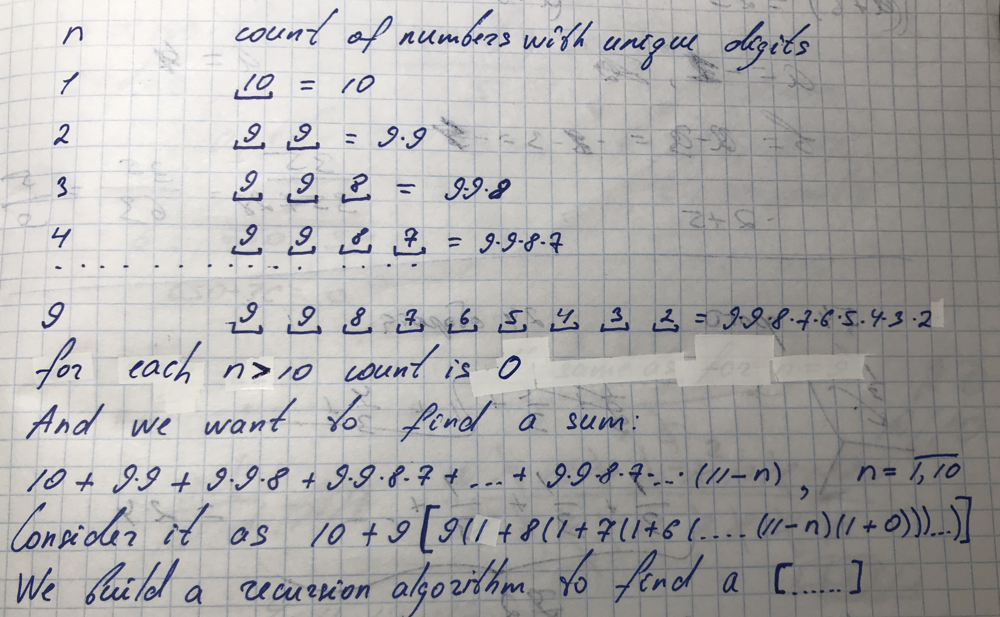 n count of numbers with unique digits
1 10 = 10
2 9 9 = 9·9
3 9 9 8 = 9·9·8
4 9 9 8 7 = 9·9·8·7
. . . . . . . . . . . . . . . .
9 9 9 8 7 6 5 4 3 2 = 9·9·8·7·6·5·4·3·2
for each n>10 count is 0
And we want to find a sum:
10 + 9·9 + 9·9·8 + 9·9·8·7 + ... + 9·9·8·7·...·(11-n), n = 1,10
Consider it as 10 + 9[9(1+8(1+7(1+6(....(11-n)(1+0)))...)]
We build a recursion algorithm to find a [......]